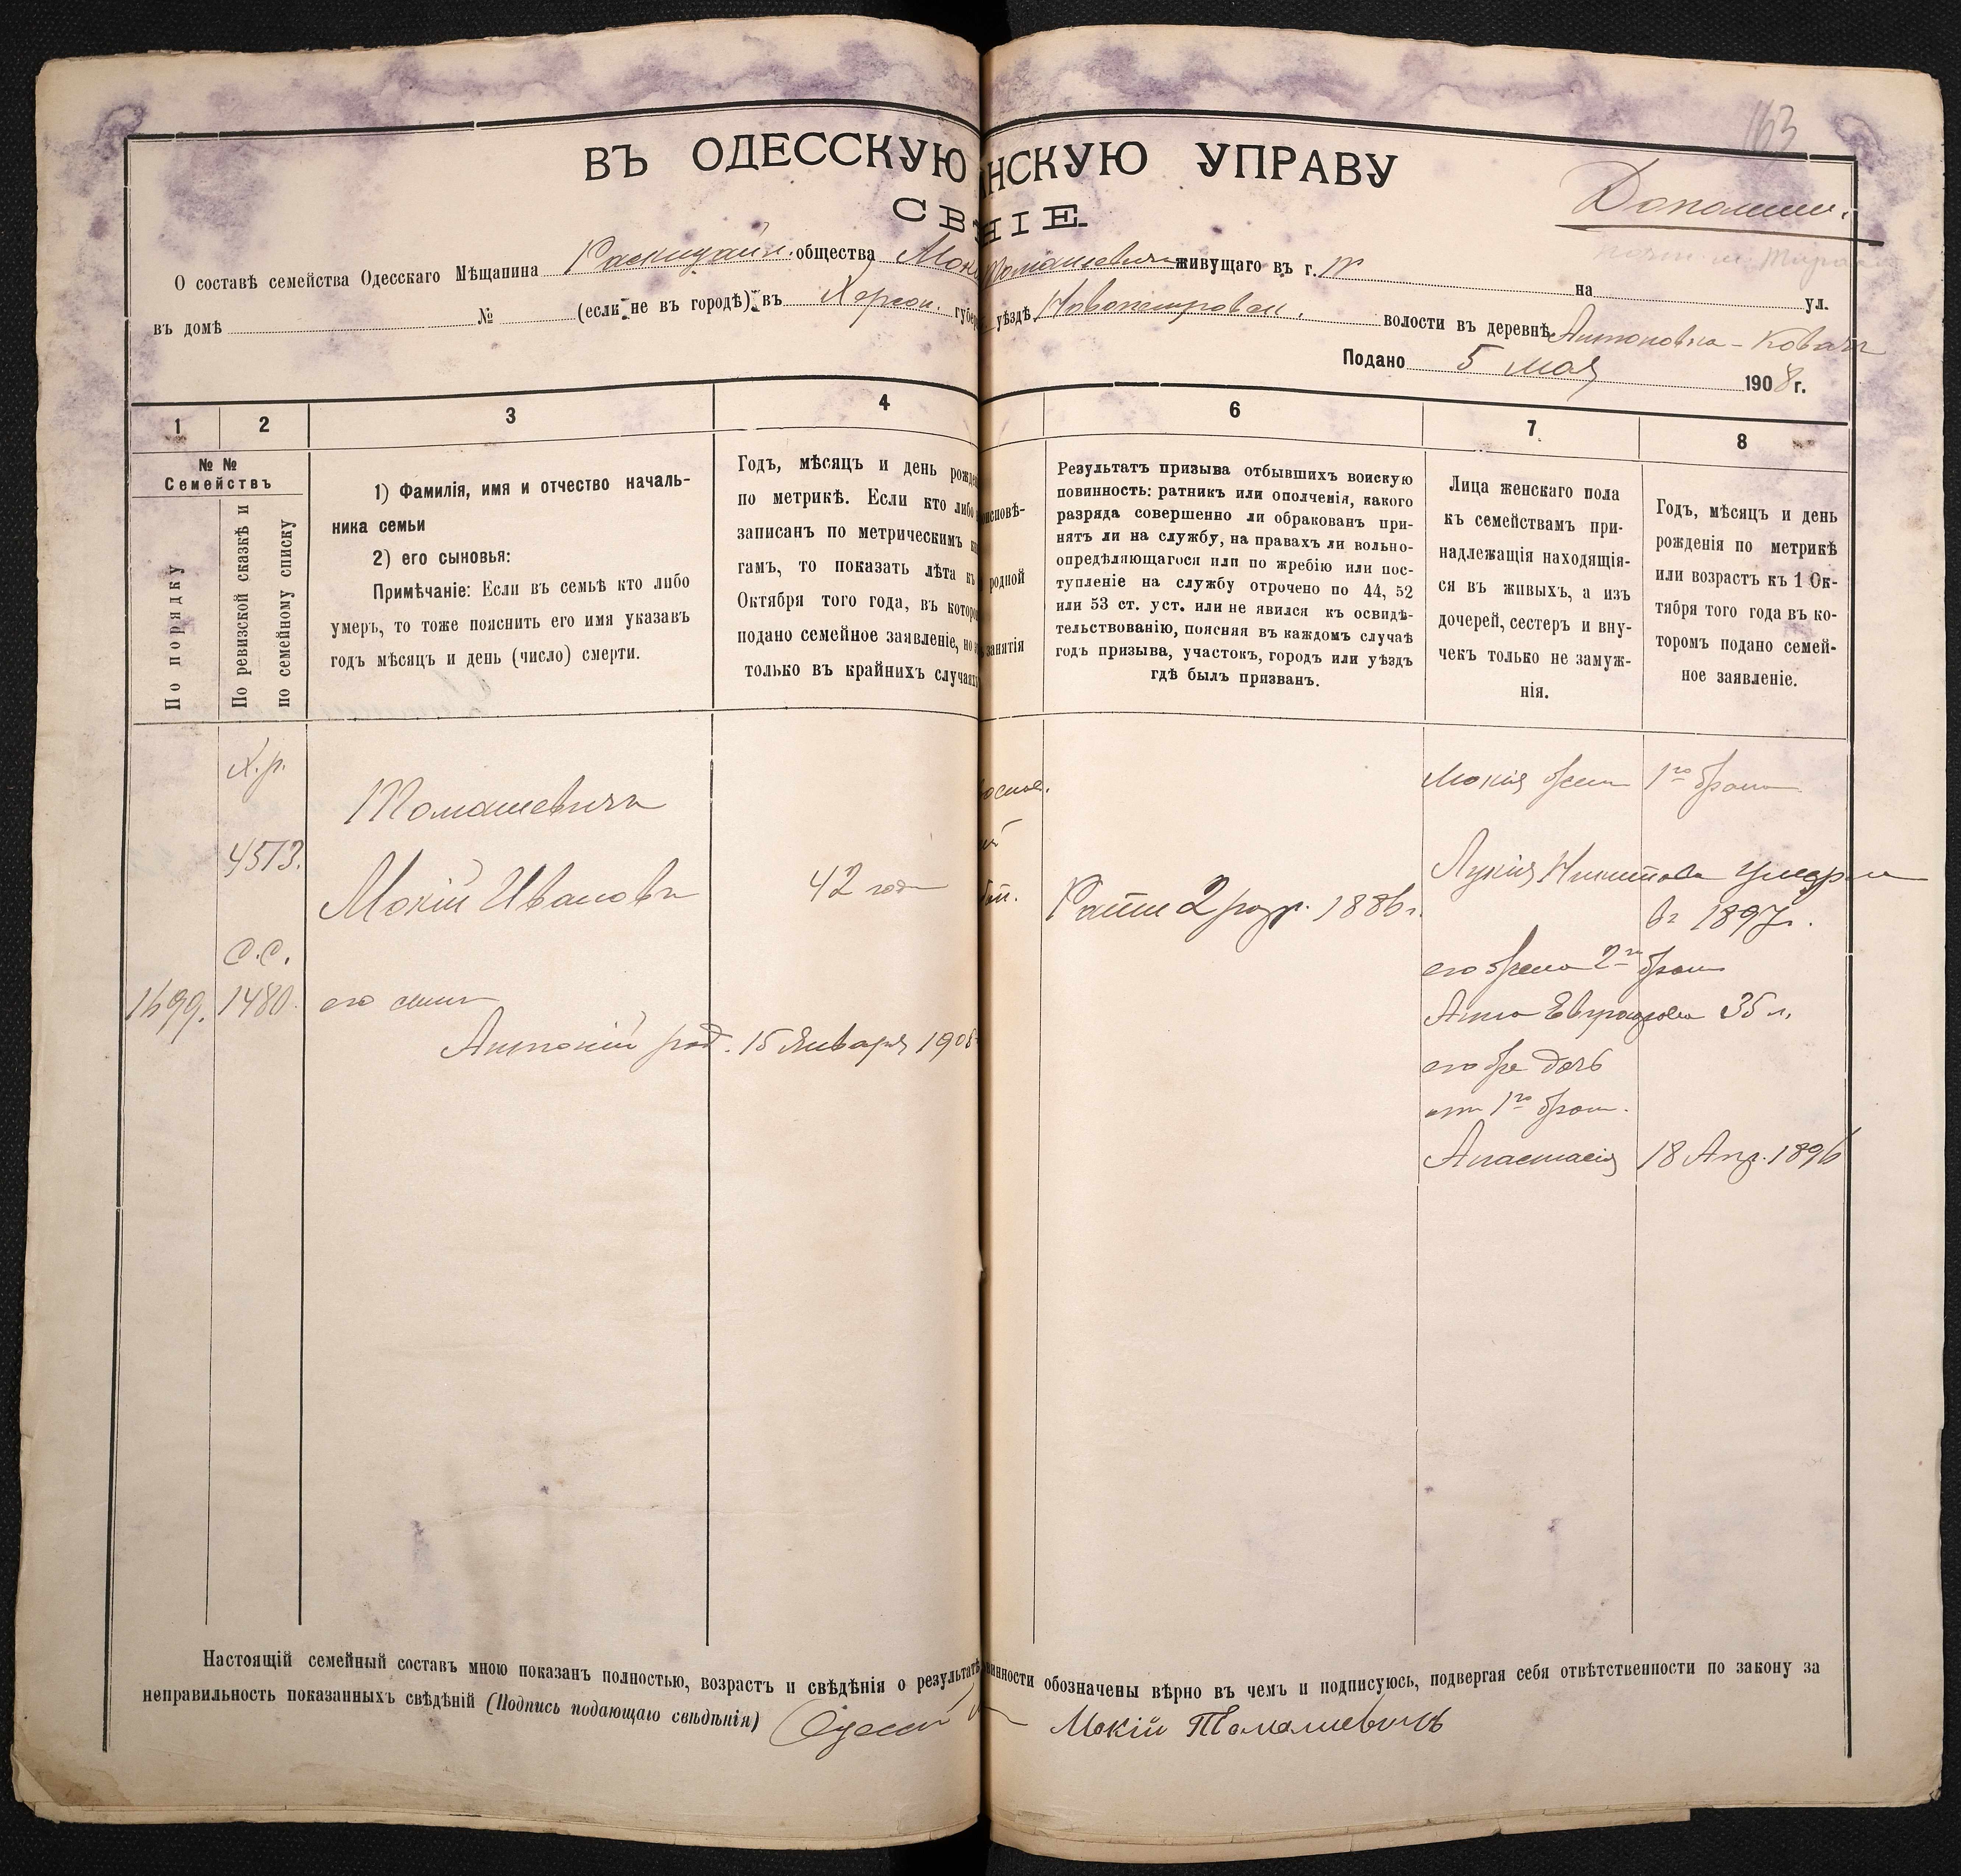 163
ВЪ ОДЕССКУЮ НСКУЮ УПРАВУ
Дополнит.
СВ НІЕ.
О составѣ семейства Одесскаго Мѣщанина Раскидайл. общества Мокі Томашевичъ живущаго въ г. на ул.
въ домѣ № (если не въ городѣ) въ Херсон. губер уѣздѣ Новопетровск. волости въ деревнѣ Антоновка-Ковачъ
Подано 5 мая 1908 г.
1 2 3 4 6 7 8
№ № Семействъ
По порядку
По ревизской сказкѣ и по семейному списку
1) Фамилія, имя и отчество началь-
ника семьи
2) его сыновья:
Примѣчаніе: Если въ семьѣ кто либо
умеръ, то тоже пояснить его имя указавъ
годъ мѣсяцъ и день (число) смерти.
Годъ, мѣсяцъ и день рожде
по метрикѣ. Если кто либо
записанъ по метрическимъ
гамъ, то показать лѣта къ
Октября того года, въ которо
подано семейное заявленіе, но
только въ крайнихъ случаяхъ
исповѣ-
родной
занятія
Результатъ призыва отбывшихъ воискую
повинность: ратникъ или ополченія, какого
разряда совершенно ли обракованъ при-
нятъ ли на службу, на правахъ ли вольно-
опредѣляющагося илп по жребію или пос-
тупленіе на службу отрочено по 44, 52
или 53 ст. уст. или не явился къ освидѣ-
тельствованію, поясняя въ каждомъ случаѣ
годъ призыва, участокъ, городъ или уѣздъ
гдѣ былъ призванъ.
Лица женскаго пола
къ семействамъ при-
надлежащія находящія-
ся въ живыхъ, а изъ
дочерей, сестеръ и вну-
чекъ только не замуж-
нія.
Годъ, мѣсяцъ и день
рожденія по метрикѣ
или возрастъ къ 1 Ок-
тября того года въ ко-
торомъ подано семей-
ное заявленіе.
Х.р.
4513.
С.С.
1699. 1480.
Томашевичъ
Мокій Ивановъ 42 года
его сынъ
Антоній род. 15 Января 190
Ратн 2 разр. 1886 г.
Мокія жена 1го брака
Лукія Никитова умерла
въ 1897 г.
его жена 2го брака
Анна Евграфова 35 л.
его дочь
отъ 1го брака.
Анастасія 18 Апр. 1896
Настоящій семейный составъ мною показанъ полностью, возрастъ и свѣдѣнія о результатѣ винности обозначены вѣрно въ чемъ и подписуюсь, подвергая себя отвѣтственности по закону за
неправильность показанныхъ свѣдѣній (Подпись подающаго свѣдѣнія) Одесскій Мокій Томашевичъ